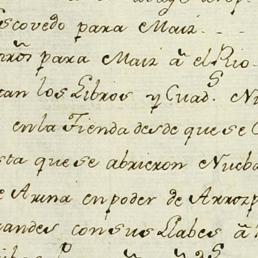 scovedo para Maiz
para Maiz a el Rio
tan los Libros y Quad.s
en la Tienda desde que se
sta que se abrieron Nueba
Arina en poder de
andes con sus Llabes a